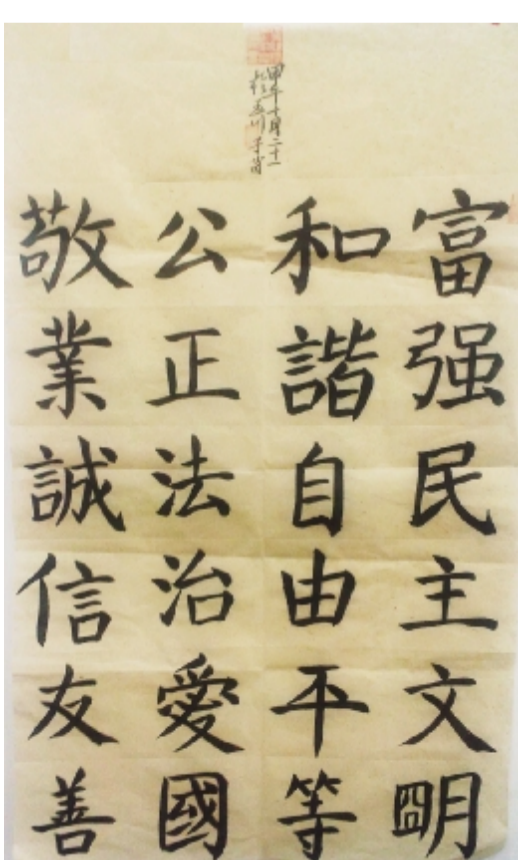 富强民主文明
和諧自由平等
公正法治愛國
敬業誠信友善
甲午十月二十一